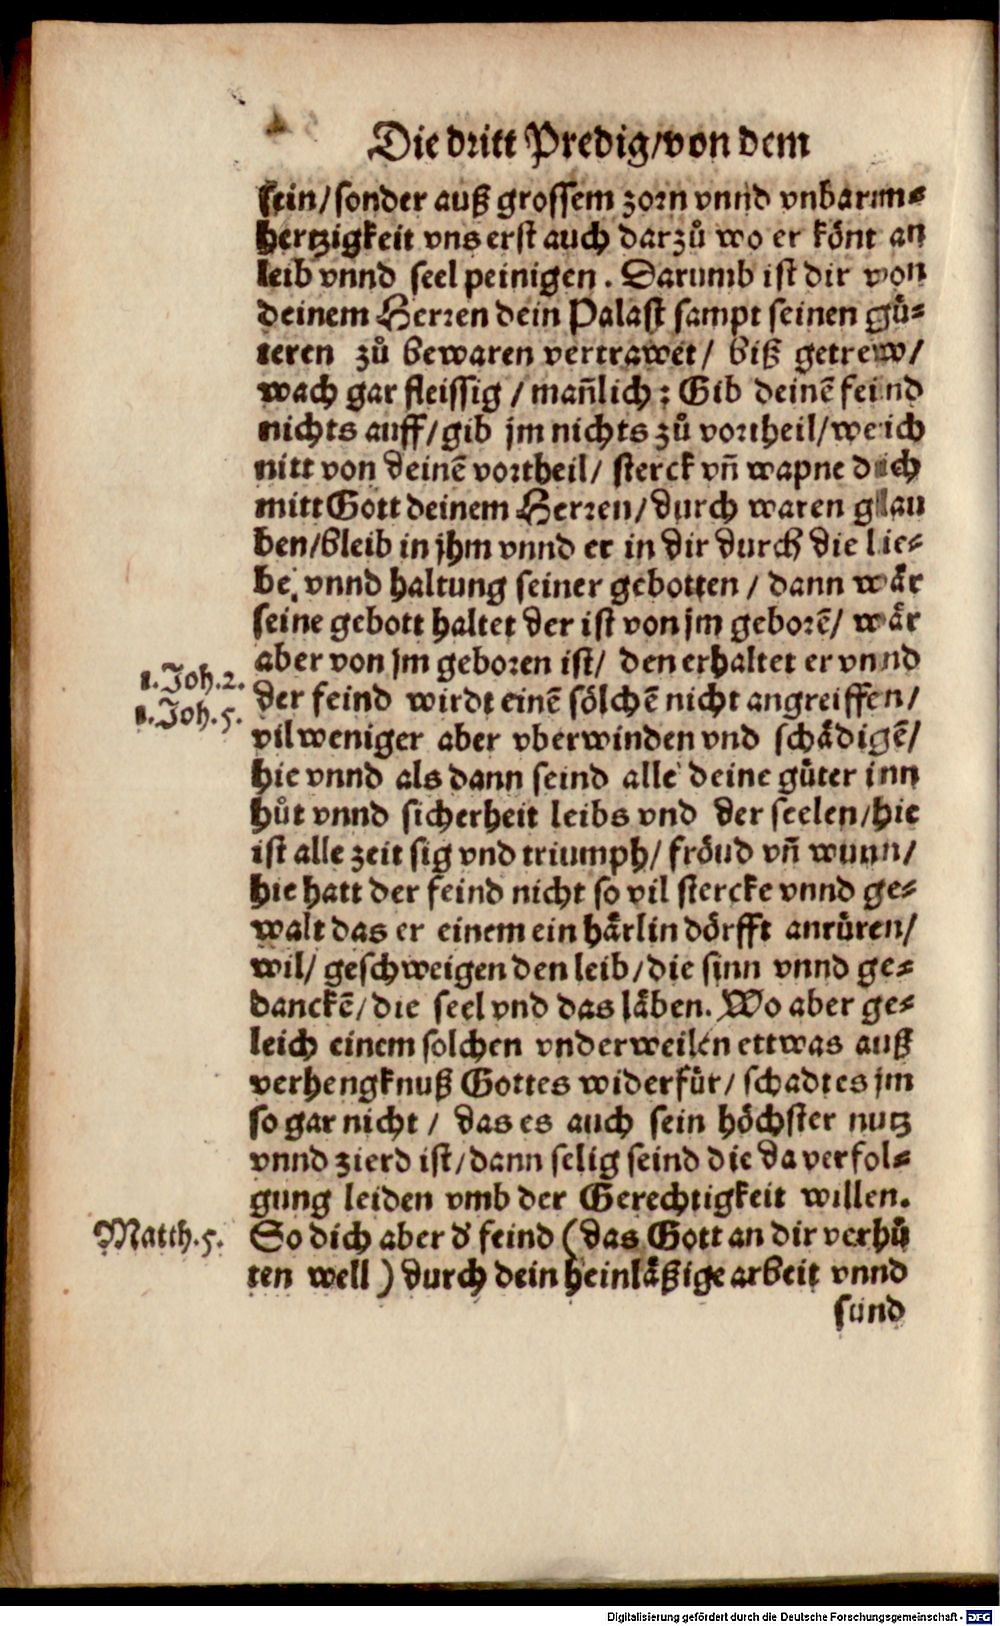 Die dritt Predig/von dem
sein/sonder auß grossem zorn vnnd vnbarm⸗
hertzigkeit vns erst auch darzů wo er könt an
leib vnnd seel peinigen. Darumb ist dir von
deinem Herren dein Palast sampt seinen gü⸗
teren zů bewaren vertrawet/ biß getrew/
wach gar fleissig / mañlich: Gib deinē feind
nichts auff/gib jm nichts zů vortheil/weich
nitt von deinē vortheil/ sterck vñ wapne dich
mitt Gott deinem Herren/durch waren glau
ben/bleib in jhm vnnd er in dir durch die lie⸗
be, vnnd haltung seiner gebotten / dann wår
seine gebott haltet der ist von jm geborē/ wår
aber von jm geboren ist/ den erhaltet er vnnd
1. Joh. 2.
der feind wirdt einē sölchē nicht angreiffen/
1. Joh. 5.
vil weniger aber vberwinden vnd schådigē/
hie vnnd als dann seind alle deine güter inn
hůt vnnd sicherheit leibs vnd der seelen/hie
ist alle zeit sig vnd triumph/ fröud vñ wunn/
hie hatt der feind nicht so vil stercke vnnd ge⸗
walt das er einem ein hårlin dörfft anrüren/
wil/ geschweigen den leib/die sinn vnnd ge⸗
danckē/die seel vnd das låben. Wo aber ge⸗
leich einem solchen vnderweilen ettwas auß
verhengknuß Gottes widerfür/ schadt es jm
so gar nicht / das es auch sein höchster nutz
vnnd zierd ist/dann selig seind die da verfol⸗
gung leiden vmb der Gerechtigkeit willen.
Matth. 5.
So dich aber d' feind (das Gott an dir verhü
ten well) durch dein heinlåßige arbeit vnnd
sünd
Digitalisierung gefördert durch die Deutsche Forschungsgemeinschaft - DFG